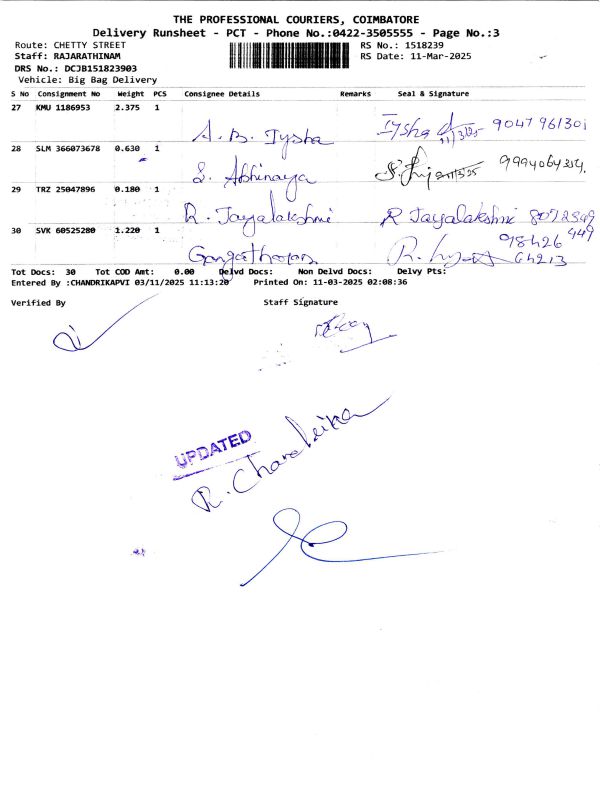 THE PROFESSIONAL COURIERS, COIMBATORE
Delivery Runsheet - PCT - Phone No.:0422-3505555 - Page No.:3
Route: CHETTY STREET RS No.: 1518239
Staff: RAJARATHINAM RS Date: 11-Mar-2025
DRS No.: DCJB151823903
Vehicle: Big Bag Delivery
S No Consignment No Weight PCS Consignee Details Remarks Seal & Signature
27 KMU 1186953 2.375 1
A. B. Iysha Iysha 11/3/25 9047961301
28 SLM 366073678 0.630 1
S. Abhinaya 9994064354.
29 TRZ 25047896 0.180 1
R. Jayalakshmi R Jayalakshmi 8072849
449
30 SVK 60525280 1.220 1
98426
64213
Tot Docs: 30 Tot COD Amt: 0.00 Delvd Docs: Non Delvd Docs: Delvy Pts:
Entered By :CHANDRIKAPVI 03/11/2025 11:13:20 Printed On: 11-03-2025 02:08:36
Verified By Staff Signature
UPDATED
R. Chandrika